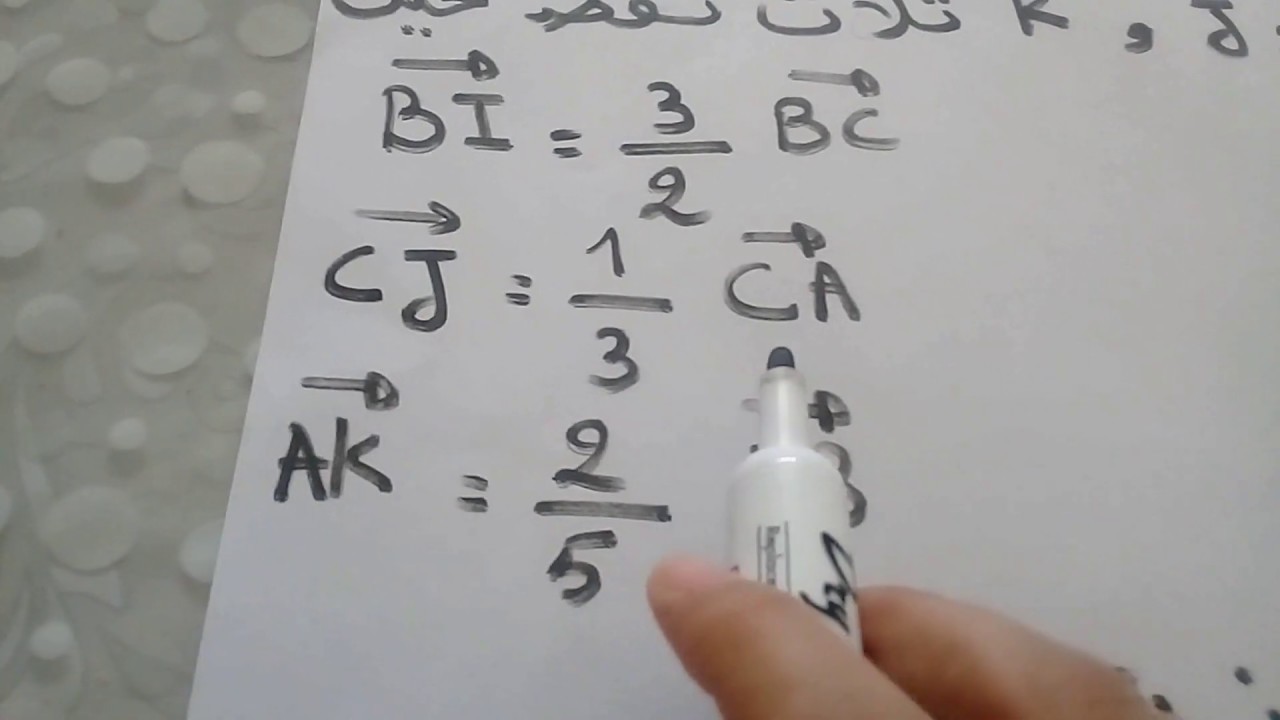 J , K ثلاث نقط حيث
BI = 3/2 BC
CJ = 1/3 CA
AK = 2/5